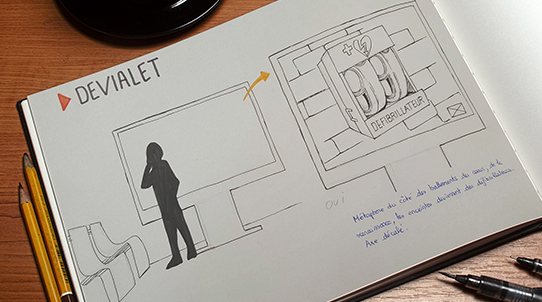 DEVIALET
DEFIBRILLATEUR
oui
Métaphore du côté des battements du coeur, de la
renaissance, les enceintes deviennent des défibrillateurs.
Axe décalé.